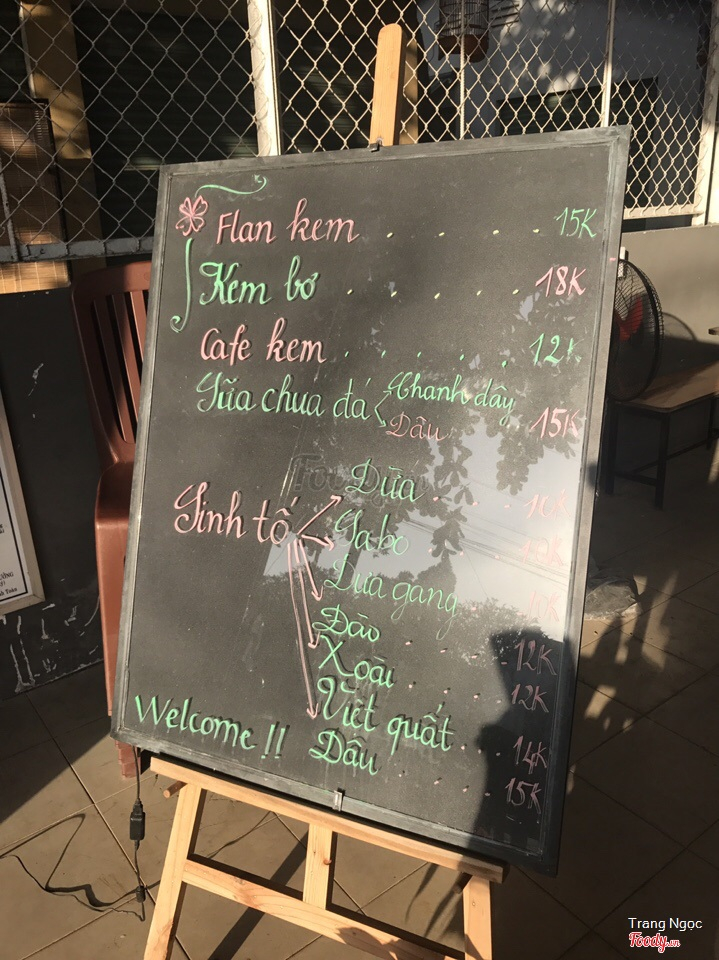 Flan kem . . . . 15K
Kem bơ . . . . . 18K
Cafe kem . . . . . 12K
Sữa chua đá Chanh dây
Dâu 15K
Sinh tố Dừa . . . 10K
Sabo . . .
Dưa gang 10K
Đào . . . 12K
Xoài . . . 12K
Việt quất . . . 14K
Dâu . . . 15K
Welcome !!
Foody
Trang Ngọc
Foody.vn